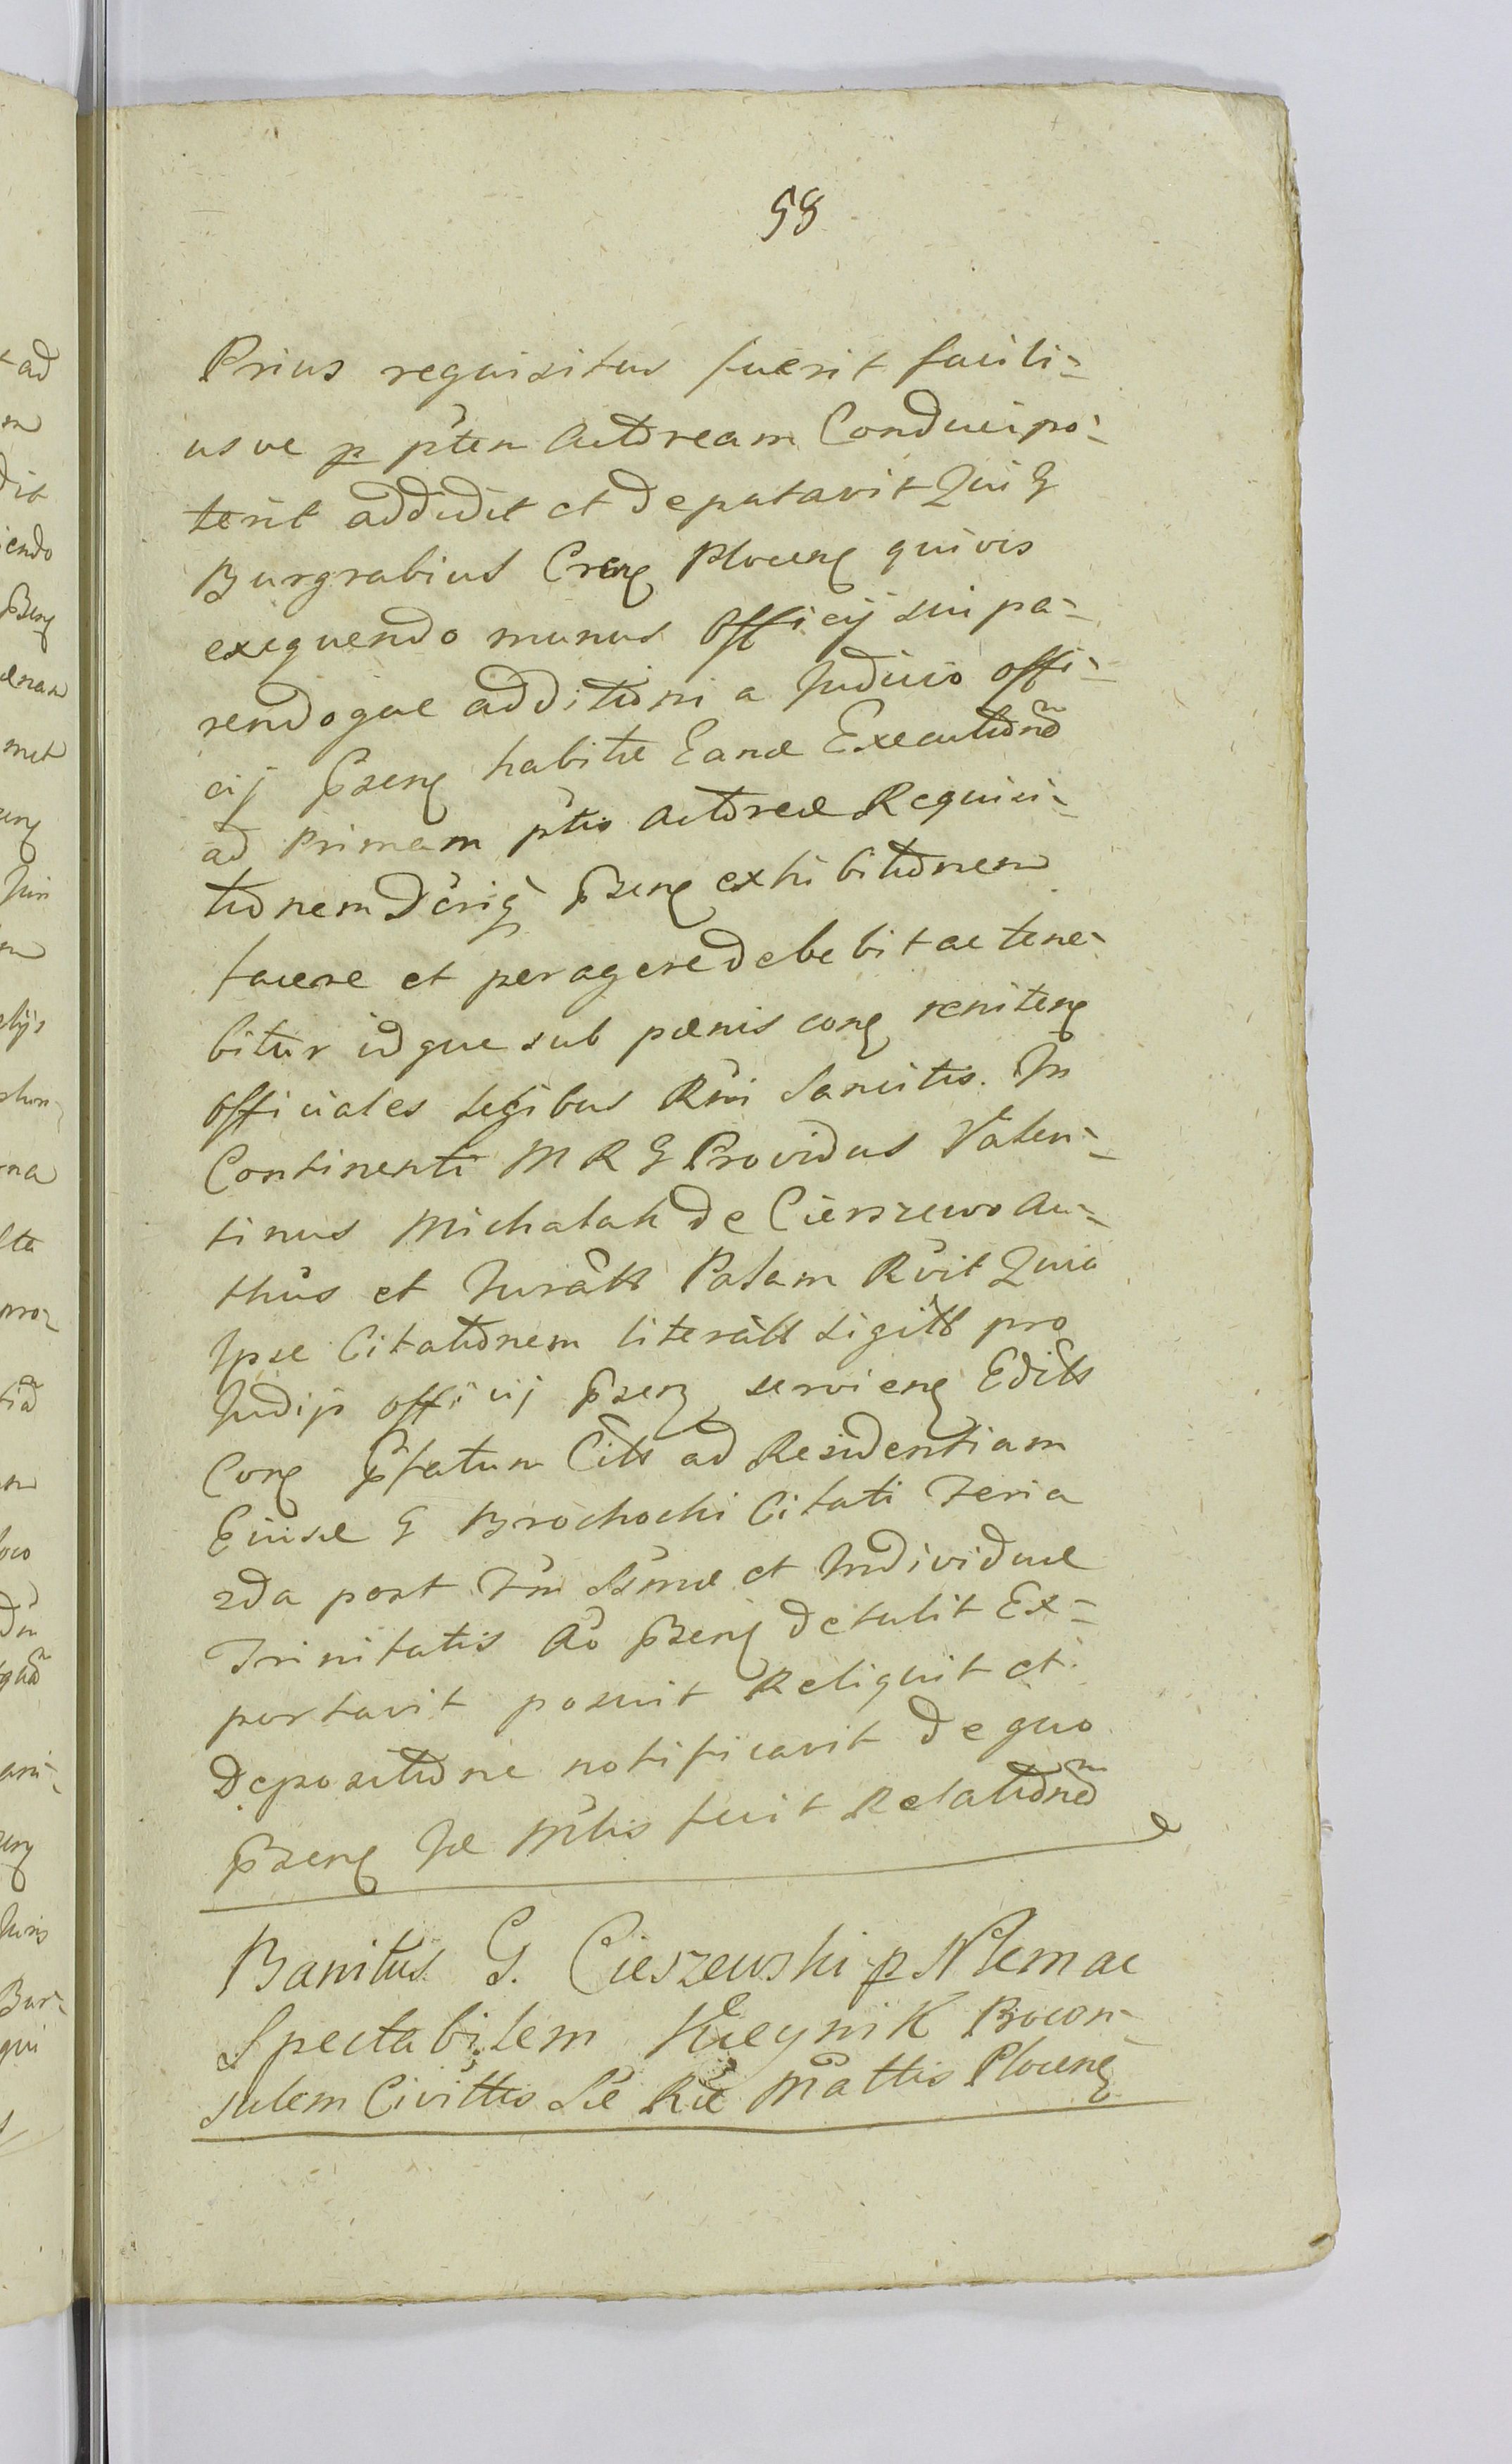 58
Prius requisitus fuerit facili-
us ve p pten actoream Conduci po-
terit addidit et deputavit Qui G
Burgrabius Cren Plocen quivis
exequendo munus Officij sui pa-
rendoque additioni a Judicio offi-
cij pzen habitæ Eand Executionem
ad Primam ptis actoreæ Requisi-
tionem Dcriq pzen exhibitionem
facere et peragere debebit ac tene-
bitur idque sub pænis con reniten
Officiales Legibus Rni Sancitis. In
Continenti M R G Providus Valen-
tinus Michalak de Cierszewo au-
thus et Juratt Palam Rvit Quia
Ipse Citationem literatt sigitt pro
Judijs officij pzen servien Editt
Con pfatum Citt ad Residentiam
Eiusd G Brochocki Citati Feria
2da post Fm SSmæ et Individuæ
Trinitatis Ao pzen detulit Ex-
portavit posuit Reliquit et
Depositione notificavit de quo
pzen Je Mtis fecit Relationem
Banitus G. Cieszewski p Nlem ac
Spectabilem Procon-
sulem Civittis Sæ Ræ Mattis Plocen